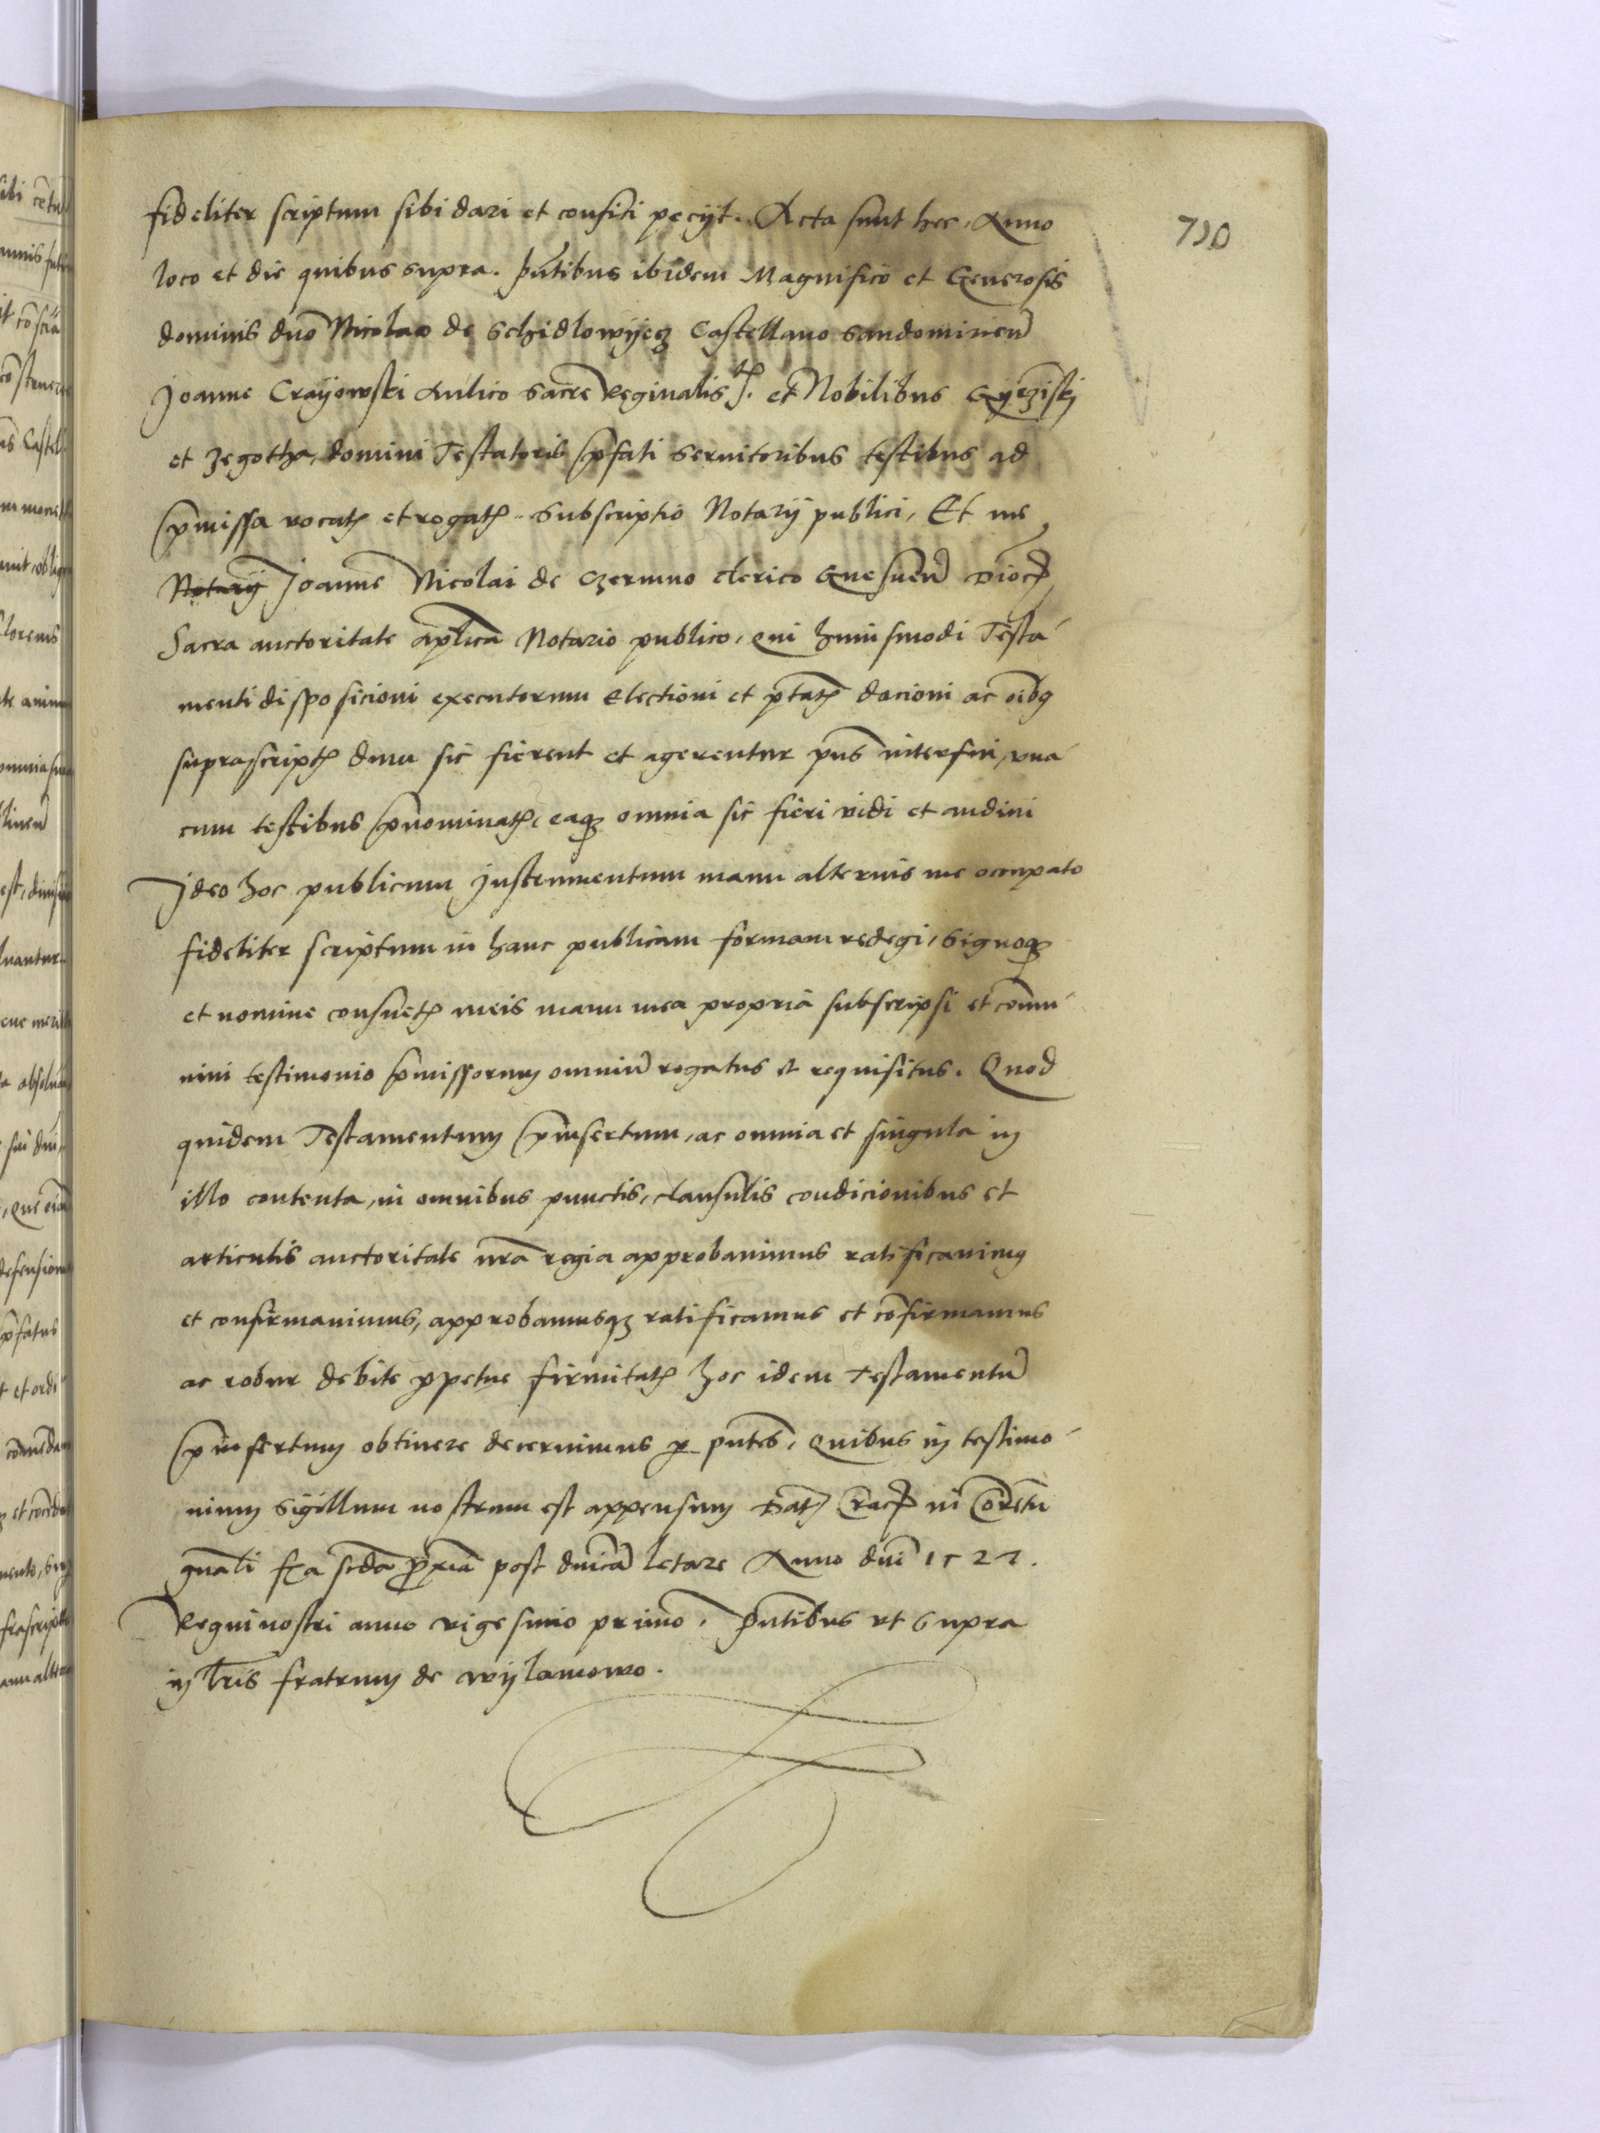 710
fideliter scriptum sibi dari et confiti peciit. Acta sunt hec, Anno
loco et die quibus supra. Pñtibus ibidem Magnifico et Generosis
dominis dno Nicolao de Schidlowyecz Castellano Sandomirien
Joanne Crayowski Aulico Sacre Reginalis et Nobilibus
et Zegotha, domini Testatoris pfati servitoribus testibus ad
pmissa vocatis et rogatis. Subscriptio Notarij publici, Et me
Notarij Joanne Nicolai de Czermno clerico Gnesnen Dioc
Sacra auctoritate aplica Notario publico, qui huiusmodi Testa
menti disposicioni executorum electioni et ptatis dacioni ac oibus
suprascriptis dum sic fierent et agerentur pns interfui, vna
cum testibus pnominatis, eaque omnia sic fieri vidi et audivi
Ideo hoc publicum Instrumentum manu alterius me occupato
fideliter scriptum in hanc publicam formam redegi, Signoque
et nomine consuetis meis manu mea propria subscripsi et commu
nivi testimonio pmissorum omniu rogatus et requisitus. Quod
quidem Testamentum pinsertum, ac omnia et singula in
illo contenta, in omnibus punctis, clausulis condicionibus et
articulis auctoritate nra regia approbavimus ratificavimus
et confirmavimus, approbamusque ratificamus et cofirmamus
ac robur debite ppetue firmitatis hoc idem Testamentu
pinsertum obtinere decernimus p pntes, Quibus in testimo
nium Sigillum nostrum est appensum Dat Crac in Conventu
gnali fia scda proxia post dnicam letare Anno dni 1527.
Regni nostri anno vigesimo primo. Pntibus vt supra
in lris fratrum de Wylamowo.